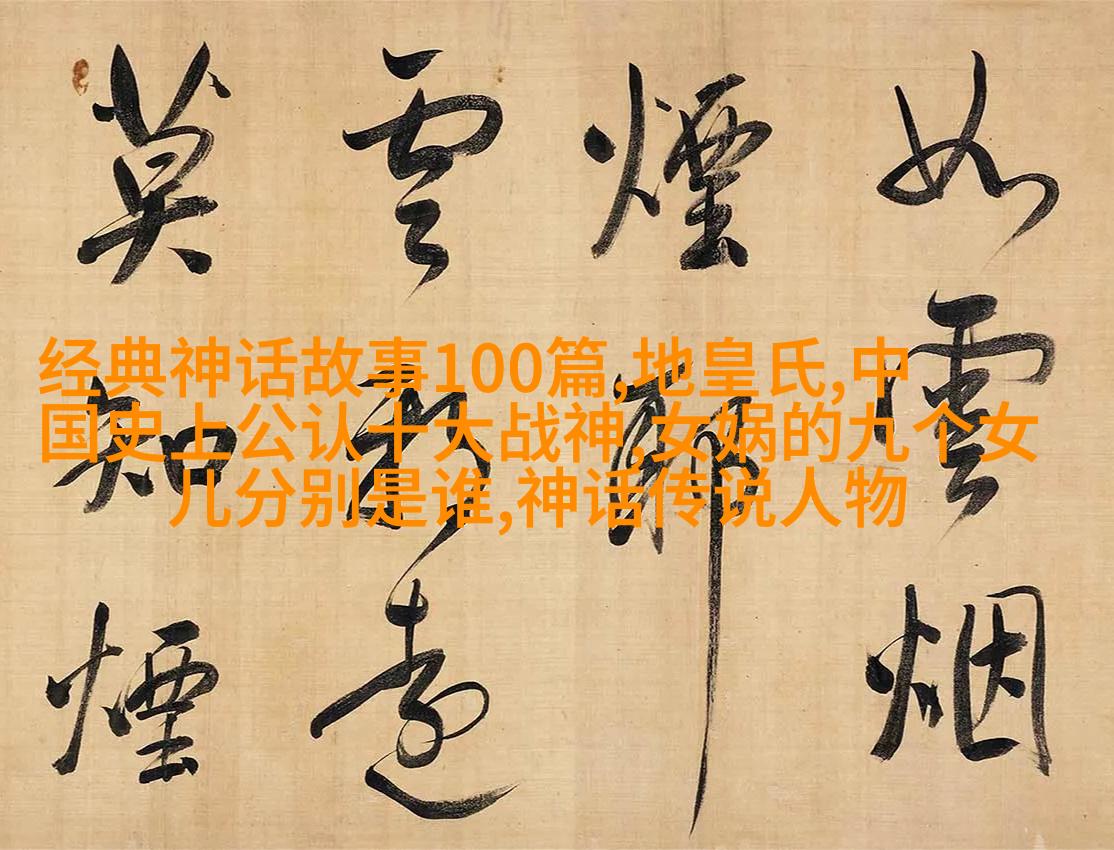 经典神话故事100篇,地皇氏,中
国史上公认十大战神,女娲的九个女
儿分别是谁,神话传说人物
如雲烟
煙
雲遠
莫知煙